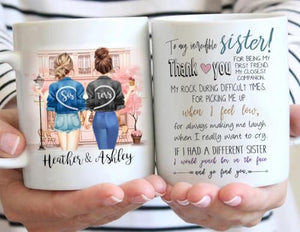 Sis
ters
Heather & Ashley
To my incredible sister!
Thank you
FOR BEING MY
FIRST FRIEND,
MY CLOSEST
COMPANION.
MY ROCK DURING DIFFICULT TIMES.
FOR PICKING ME UP
when I feel low,
for always making me laugh
when I really want to cry.
IF I HAD A DIFFERENT SISTER
I would punch her in the face
and go find you.